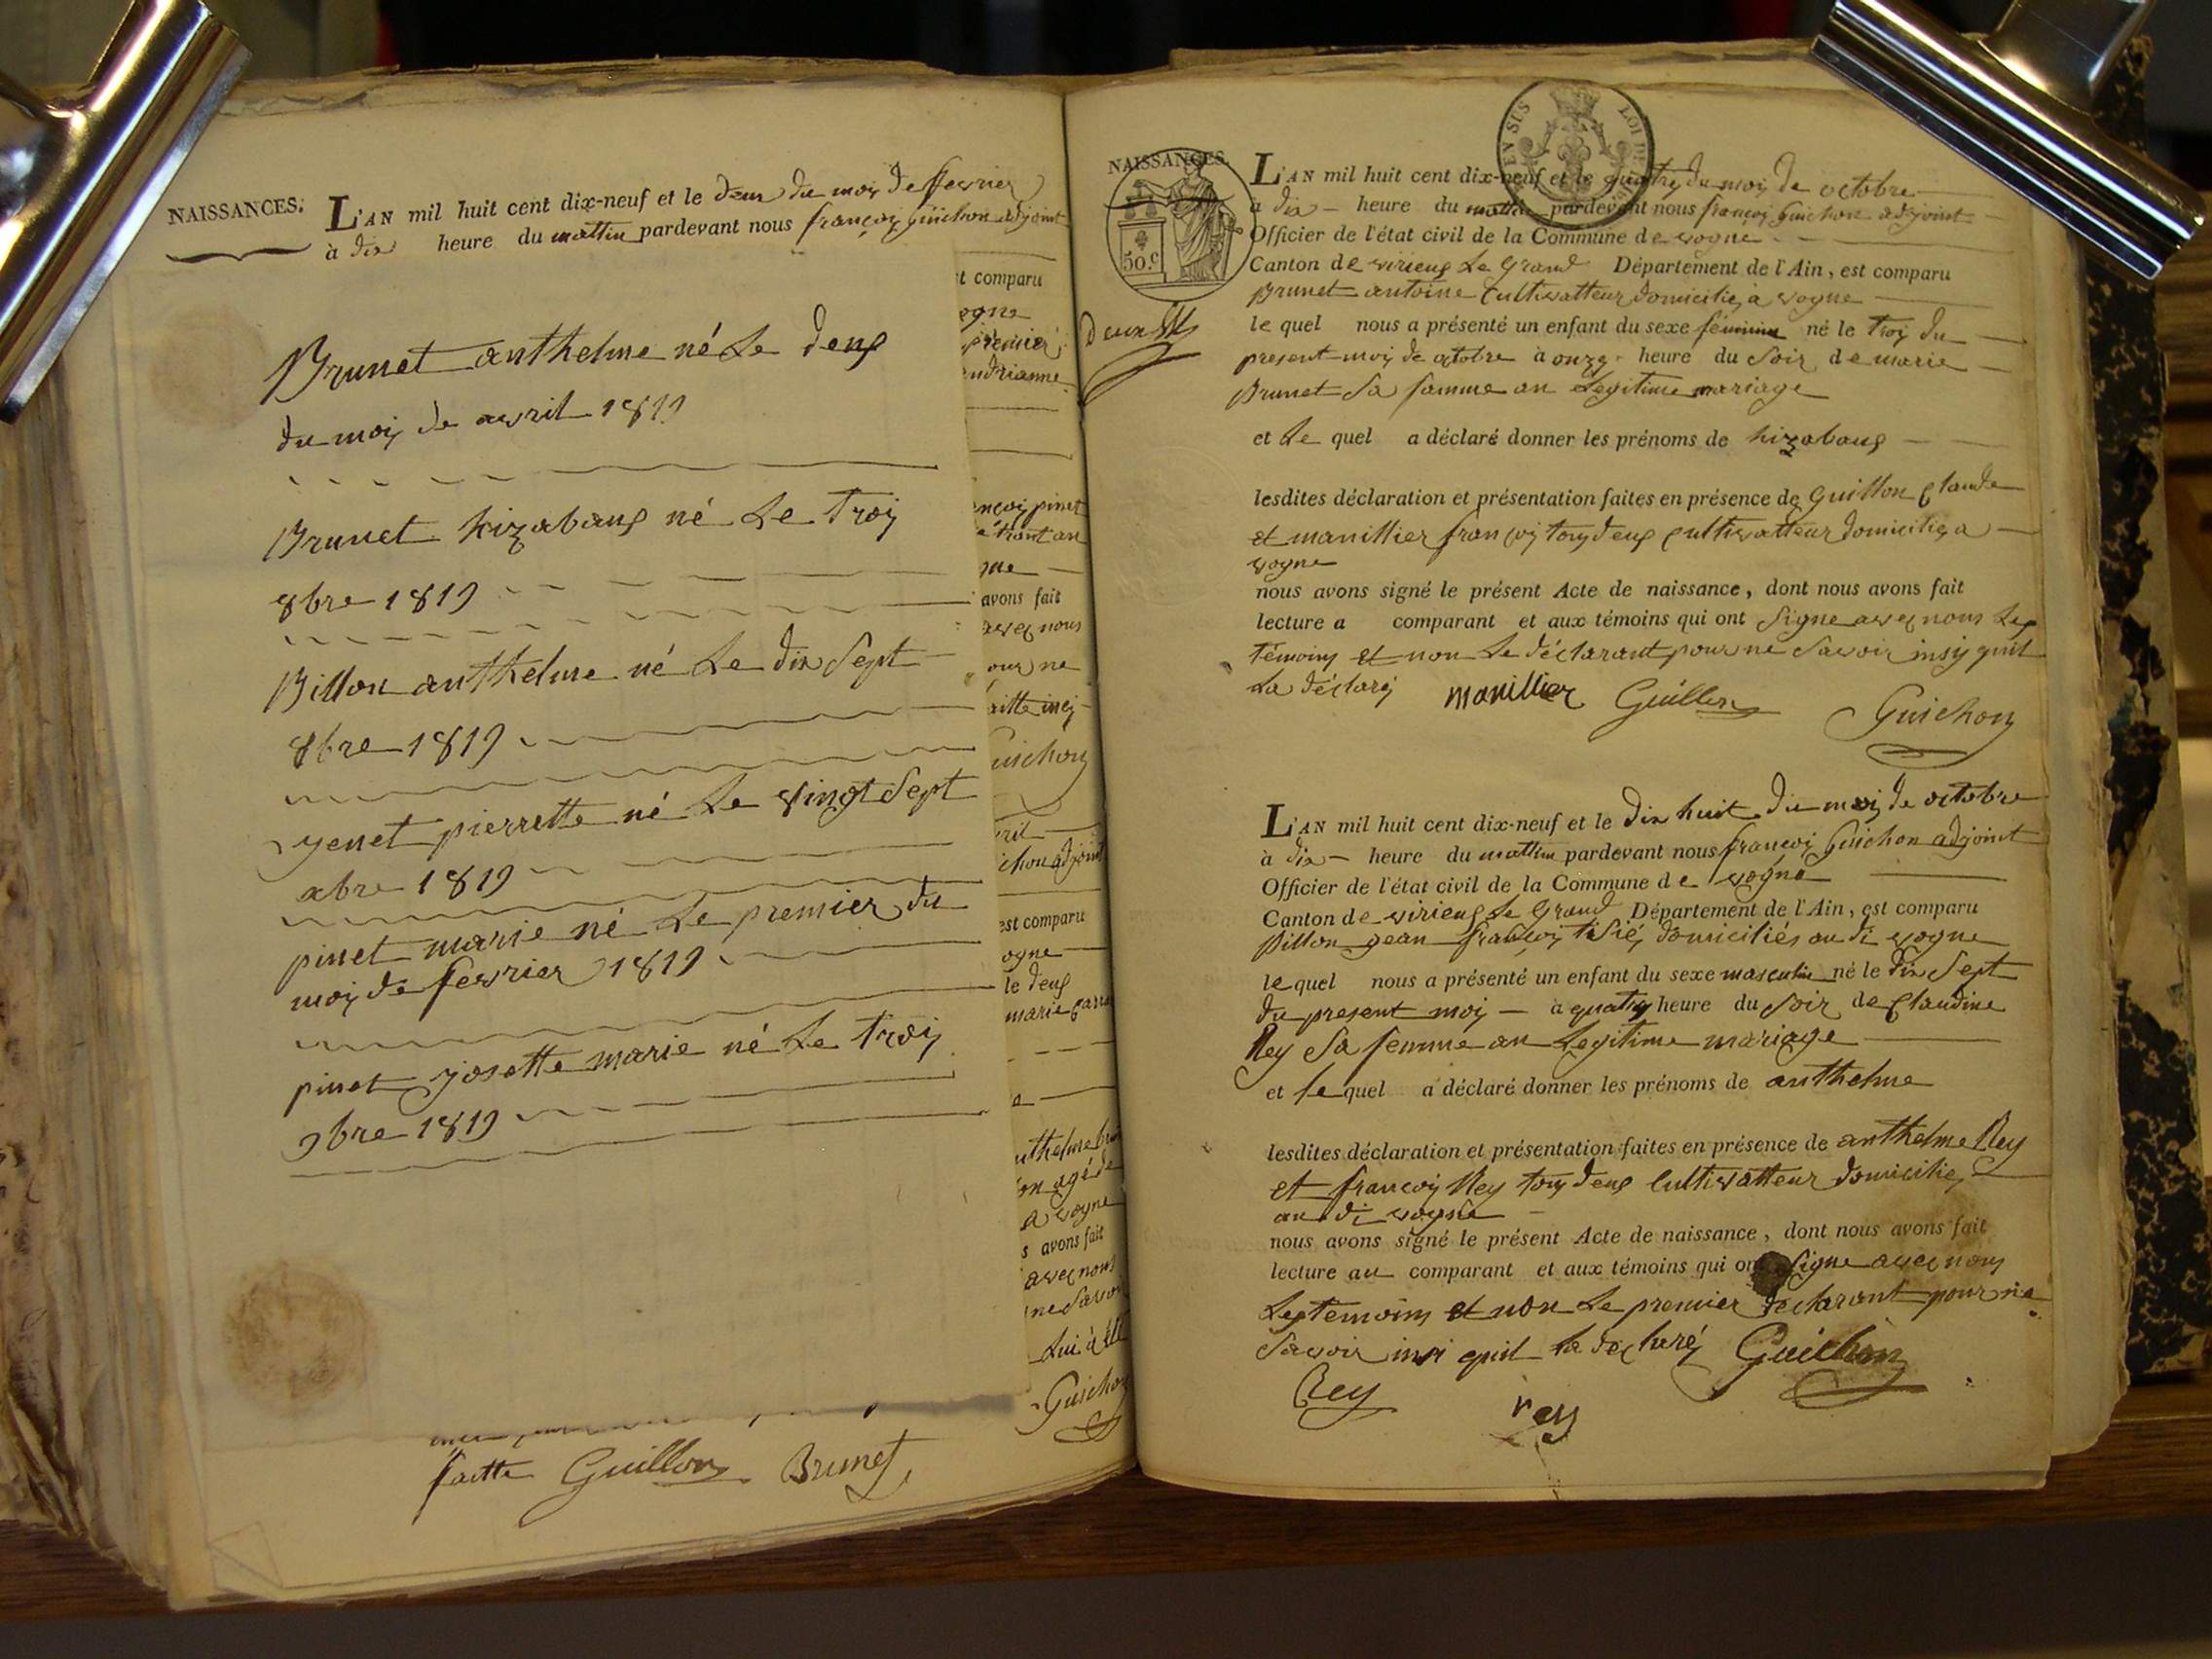 NAISSANCES.
L'AN mil huit cent dix-neuf et le deux du moy de fevrier
à dix heure du mattin pardevant nous françoiz Guichon adjoint
Brunet anthelme né Le deux
du moy de avril 1819
Brunet hizabaux né Le troy
8bre 1819
Billon anthelme né Le dix Sept
8bre 1819
genet pierrette né Le vingt Sept
xbre 1819
pinet marie né Le premier du
moy de fevrier 1819
pinet josette marie né Le troiy
9bre 1819
faitte Guillon Brunet
t comparu
ogne
premier
endrianne
ençoy pinet
gne
avons fait
avec nous
our ne
aitte
uichon
ril
ichon adjoint
est comparu
ogne
le deux
marie
nthelme
on agé de
a vogne
s avons fait
avec nous
ne Savoir
Lui a
Guichon
EN SUS LOI DE
NAISSANCES.
50.c
Deux
L'AN mil huit cent dix-neuf et le quatre du moy de octobre
a dix heure du mattin pardevant nous françoy Guichon adjoint
Officier de l'état civil de la Commune de vogne
Canton de virieux Le Grand Département de l'Ain, est comparu
Brunet antoine Cultivatteur domicilié a vogne
le quel nous a présenté un enfant du sexe féminin né le troy du
present moy de octobre à onze heure du Soir de marie
Brunet Sa famme an Legitime mariage
et Le quel a déclaré donner les prénoms de hizabaux
lesdites déclaration et présentation faites en présence de Guillon Claude
et manillier françoy touy deux Cultivatteur domicilié a
vogne
nous avons signé le présent Acte de naissance, dont nous avons fait
lecture a comparant et aux témoins qui ont Signe avec nous Les
témoins et non Le déclarant pour ne Savoir insy quil
La déclaré manillier Guillon Guichon
L'AN mil huit cent dix-neuf et le dix huit du moy de octobre
à dix heure du mattin pardevant nous françoy Guichon adjoint
Officier de l'état civil de la Commune de vogne
Canton de virieux Le Grand Département de l'Ain, est comparu
Billon jean françoy domiciliés au di vogne
le quel nous a présenté un enfant du sexe masculin né le dix Sept
du present moy à quatre heure du Soir de Claudine
Rey Sa femme an Legitime mariage
et le quel a déclaré donner les prénoms de anthelme
lesdites déclaration et présentation faites en présence de anthelme Rey
et françoy Rey touy deux Cultivatteur domicilié
au di vogne
nous avons signé le présent Acte de naissance, dont nous avons fait
lecture au comparant et aux témoins qui ont Signe avec nous
Les temoins et non Le premier declarant pour ne
Savoir insi quil la declaré Guichon
Rey rey